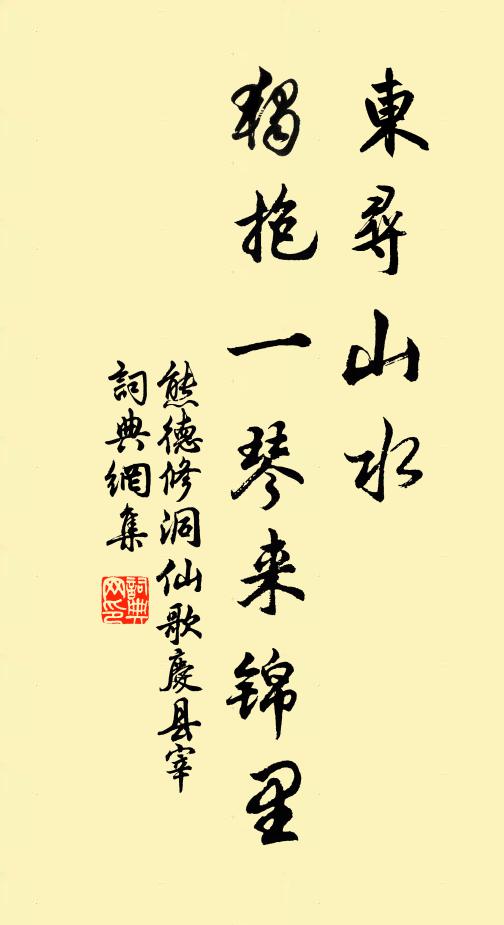 東尋山水
獨抱一琴来錦里
熊德修洞仙歌慶县宰
詞典網集
詞典网印